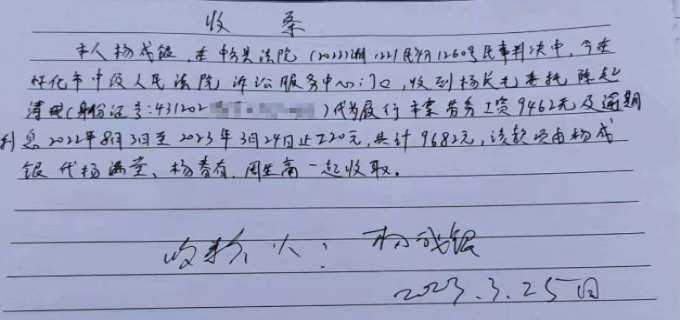 收条
本人杨成银,在中方县法院(2022)湘1221民初1260号民事判决中,今在
怀化市中级人民法院诉讼服务中心门口,收到杨长毛委托陈
清田(身份证号:431202 )代为履行本案劳务工资9462元及逾期
利息2022年8月3日至2023年3月24日止220元,共计9682元,该款项由杨成
银代杨满堂、杨青有、周生高一起收取。
收款人:杨成银
2023.3.25日